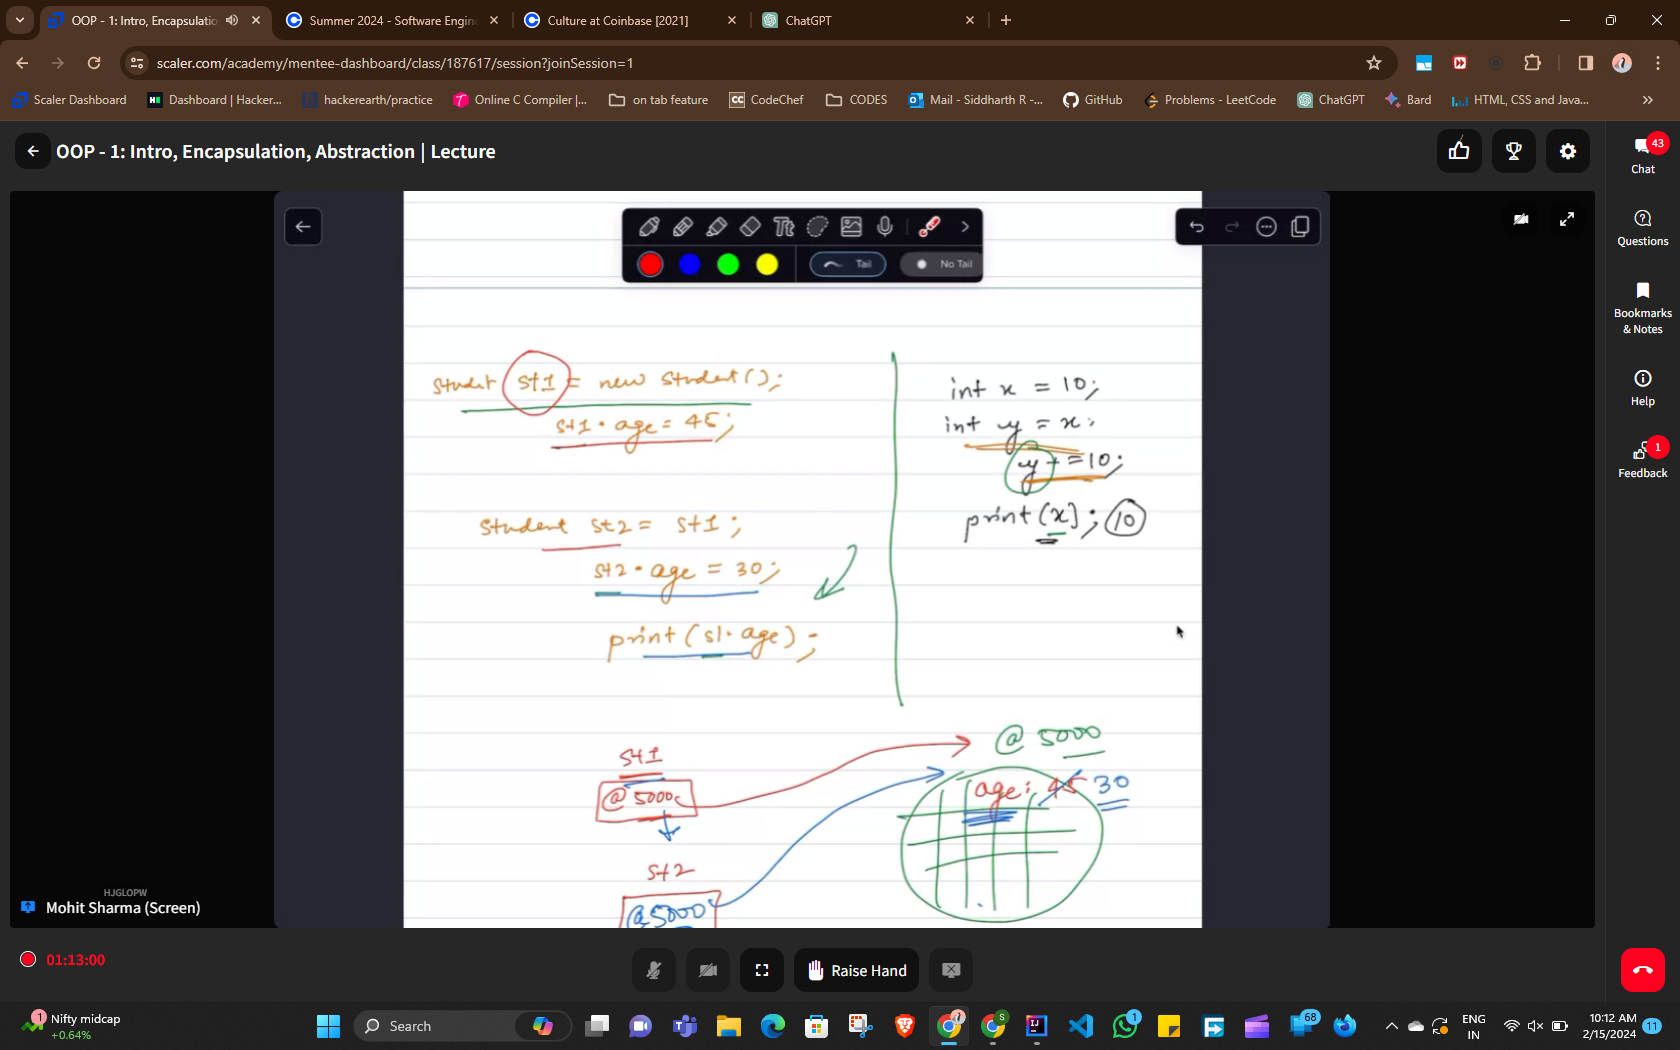 OOP - 1: Intro, Encapsulatio
Summer 2024 - Software Engin
Culture at Coinbase [2021]
ChatGPT
scaler.com/academy/mentee-dashboard/class/187617/session?joinSession=1
Scaler Dashboard
Dashboard | Hacker...
hackerearth/practice
Online C Compiler |...
on tab feature
CodeChef
CODES
Mail - Siddharth R -...
GitHub
Problems - LeetCode
ChatGPT
Bard
HTML, CSS and Java...
OOP - 1: Intro, Encapsulation, Abstraction | Lecture
43
Chat
Questions
Bookmarks
& Notes
Help
1
Feedback
Tt
Tail
No Tail
Studet st1 = new Student();
st1.age = 45;
Student st2 = st1;
st2.age = 30;
print(s1.age);
int x = 10;
int y = x;
y+=10;
print(x); 10
st1
@ 5000
st2
@5000
@ 5000
age: 45 30
HJGLOPW
Mohit Sharma (Screen)
01:13:00
Raise Hand
1
Nifty midcap
+0.64%
Search
S
1
68
ENG
IN
10:12 AM
2/15/2024
11